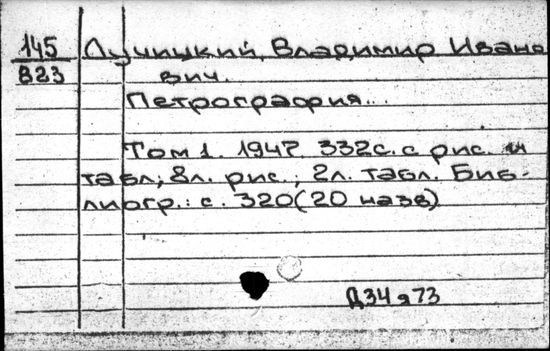 145
823
Лучицкий, Владимир Ивано
вич.
Петрография...
Том 1. 1947 332с. с рис. и
табл; 8л. рис.; 2л. табл. Биб-
лиогр.: с. 320(20 назв)
Д34я73